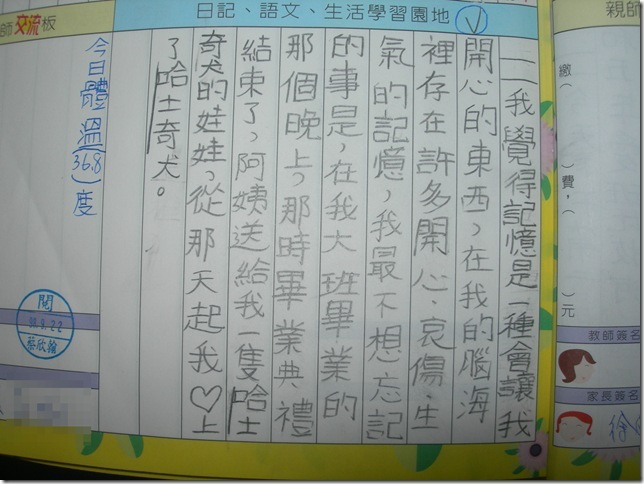 親師
繳(　　)費,(　　)元
教師簽名
家長簽名
徐
日記、語文、生活學習園地
我覺得記憶是一種會讓我
開心的東西,在我的腦海
裡存在許多開心、哀傷、生
氣的記憶,我最不想忘記
的事是,在我大班畢業的
那個晚上,那時畢業典禮
結束了,阿姨送給我一隻哈士
奇犬的娃娃,從那天起我♡上
了哈士奇犬。
師交流板
今日體溫(36.8)度
閱